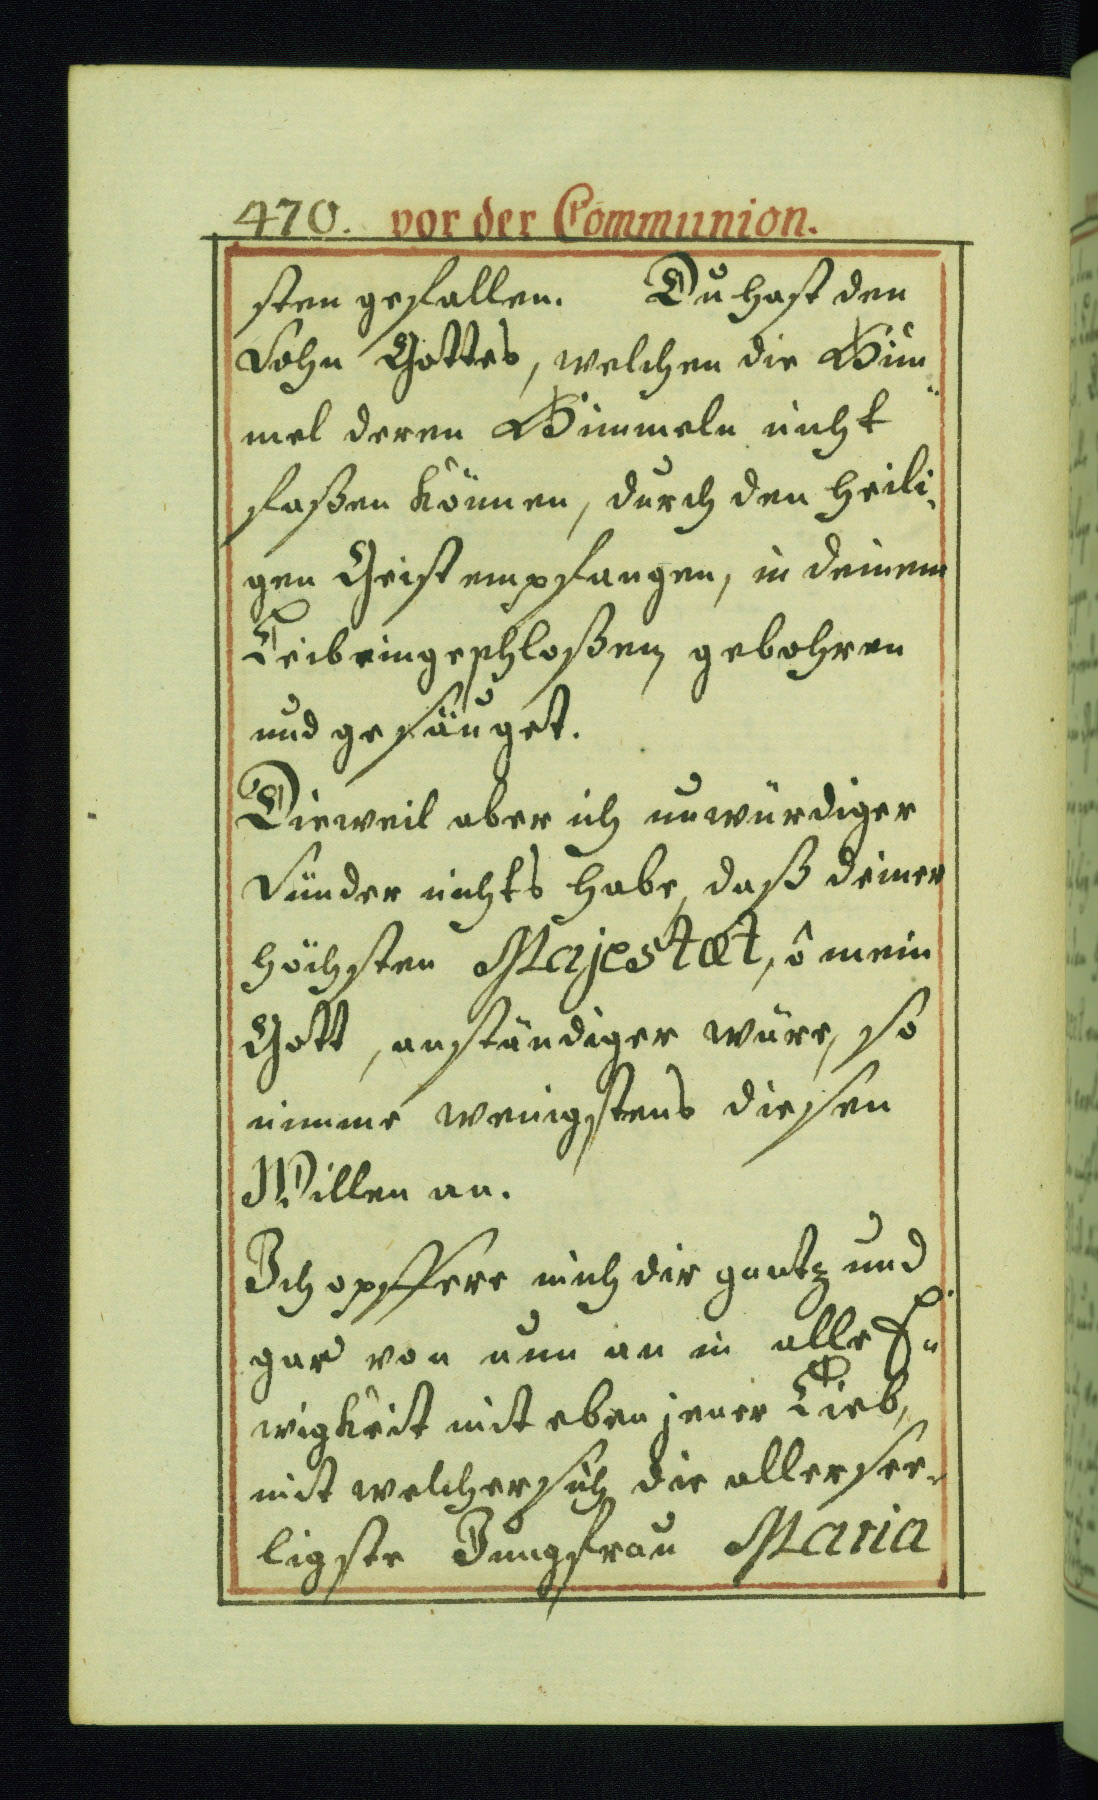 470. vor der Communion.
sten gefallen. Du hast den
Sohn Gottes, welchen die Him„
mel deren Himmeln nicht
faßen können, durch den heili„
gen Geist empfangen, in deinem
Leib eingeschloßen, gebohren
und gesäuget.
Dieweil aber ich unwürdiger
Sünder nichts habe, daß deiner
höchsten Majestæt, ô mein
Gott, anständiger wäre, so
nimme wenigstens diesen
Willen an.
Ich opffere mich dir gantz und
gar von nun an in alle E„
wigkeit mit eben jener Lieb,
mit welcher sich die allersee„
ligste Jungfrau Maria